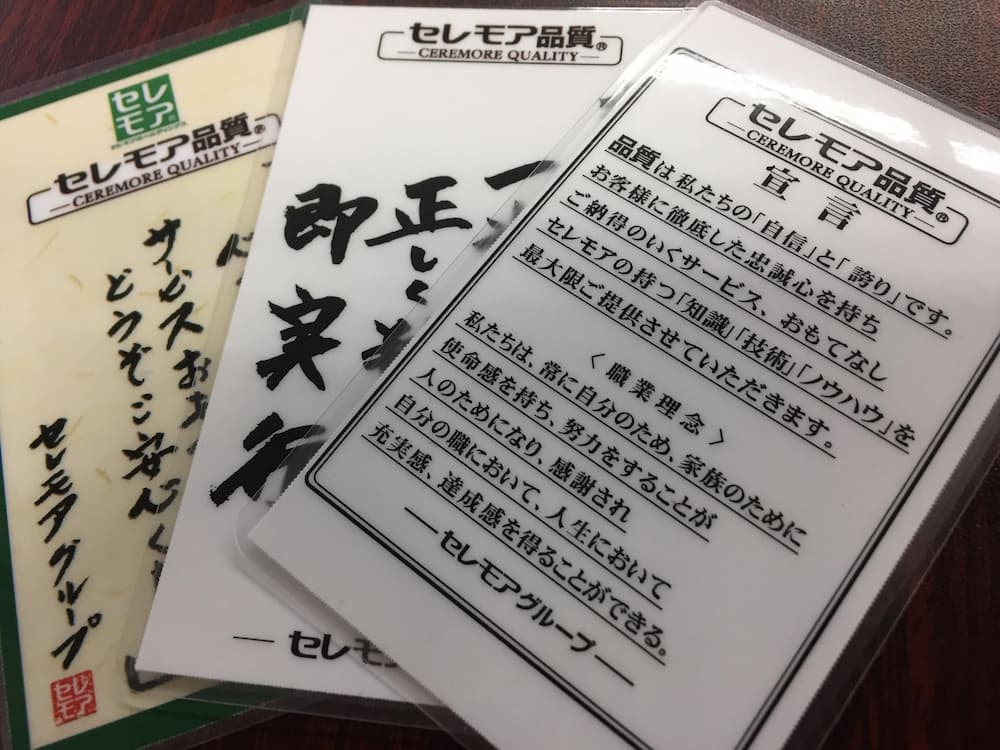 セレモア
セレモア品質®
CEREMORE QUALITY
サービスお
どうぞご安心く
セレモアグループ
セレモア
セレモア品質®
CEREMORE QUALITY
正し
即実行
セレモ
セレモア品質®
CEREMORE QUALITY
宣言
品質は私たちの「自信」と「誇り」です。
お客様に徹底した忠誠心を持ち
ご納得のいくサービス、おもてなし
セレモアの持つ「知識」「技術」「ノウハウ」を
最大限ご提供させていただきます。
〈職業理念〉
私たちは、常に自分のため、家族のために
使命感を持ち、努力をすることが
人のためになり、感謝され
自分の職において、人生において
充実感、達成感を得ることができる。
―セレモアグループ―